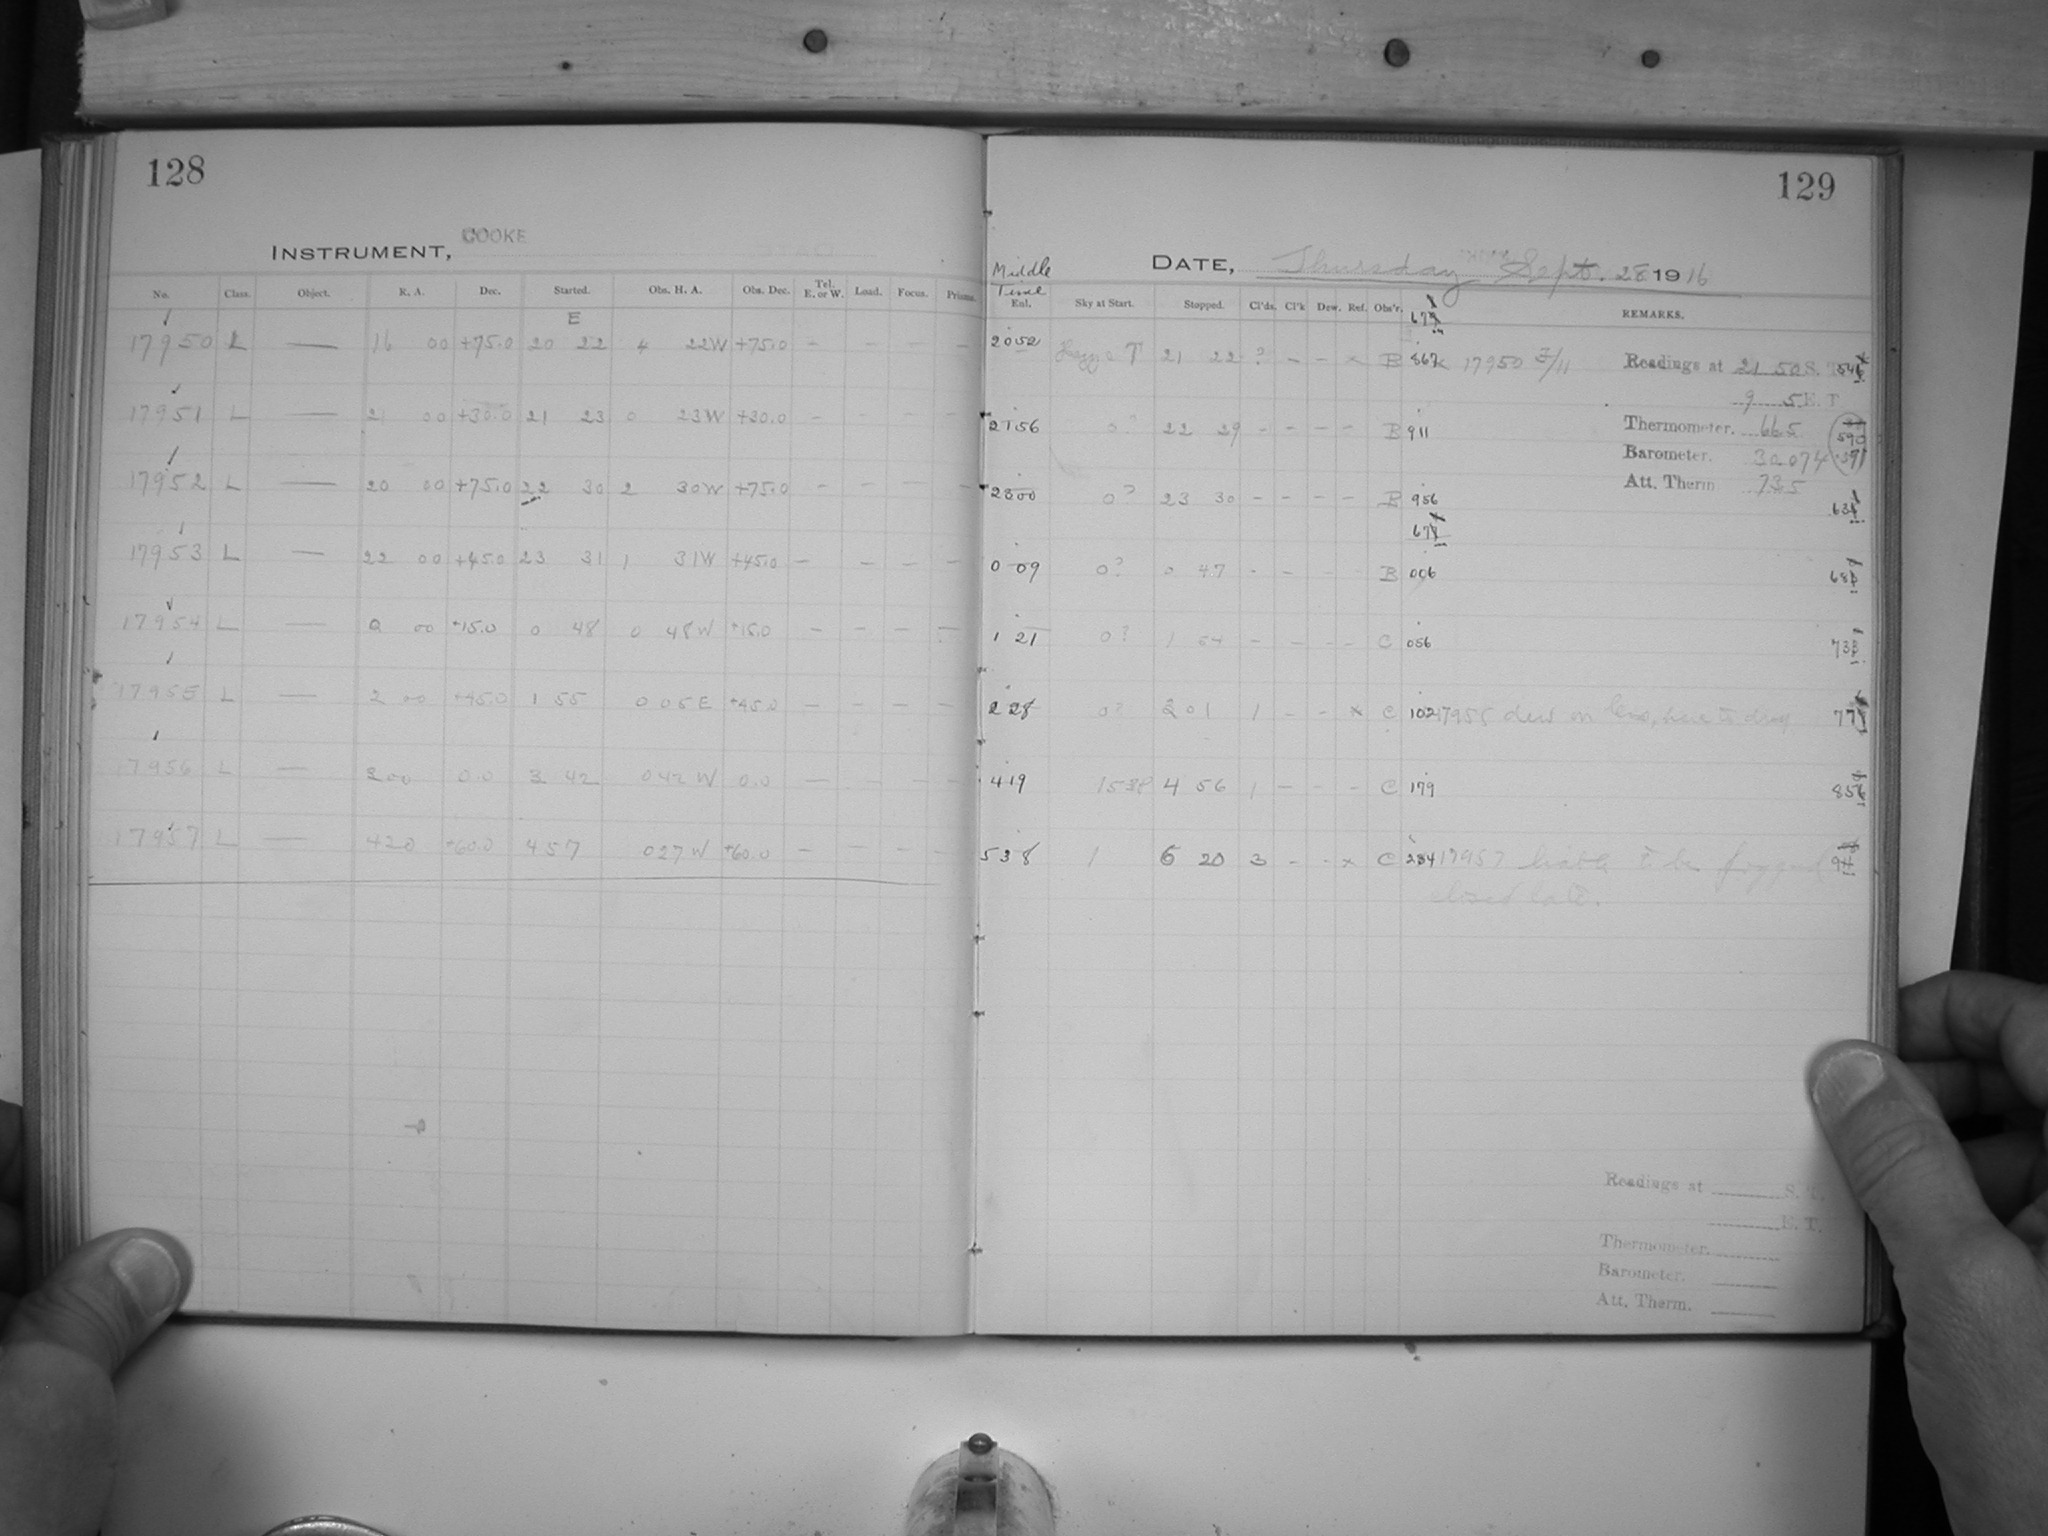 128
INSTRUMENT, COOKE
No. Class. Object. R. A. Dec. Started. Obs. H. A. Obs. Dec. Tel. E. or W. Load. Focus. Prisms.
E
17950 L — 16 00 +75.0 20 22 4 22W +75.0 – – – –
17951 L — 21 00 +30.0 21 23 0 23W +30.0 – – – –
17952 L — 20 00 +75.0 22 30 2 30W +75.0 – – – –
17953 L — 22 00 +45.0 23 31 1 31W +45.0 – – – –
17954 L — 0 00 +15.0 0 48 0 48W +15.0 – – – –
17955 L — 2 00 +45.0 1 55 0 05E +45.0 – – – –
17956 L — 3 00 0.0 3 42 0 42 W 0.0 – – – –
17957 L — 4 30 +60.0 4 57 0 27 W +60.0 – – – –
129
DATE, Thursday Sept. 28 1916
Middle
Time
Enl. Sky at Start. Stopped. Cl'ds. Cl'k Dew. Ref. Obs'r. REMARKS.
20 52 21 22 ? – – x B 17950
Readings at 21 50 S. T.
9 5 E. T.
21 56 0? 22 29 – – – – B 911
Thermometer. 66.5
Barometer. 30.074
Att. Therm 73.5
23 00 0? 23 30 – – – – B 956
0 09 0? 0 47 – – – – B 006
1 21 0? 1 54 – – – – C 056
2 28 0? 3 01 1 – – x C 102 17955 dew on lens, have to dry
4 19 4 56 1 – – – C 179
5 38 1 6 20 3 – – x C 234 17957 liable to be fogged
closed late.
Readings at S. T.
E. T.
Thermometer.
Barometer.
Att. Therm.